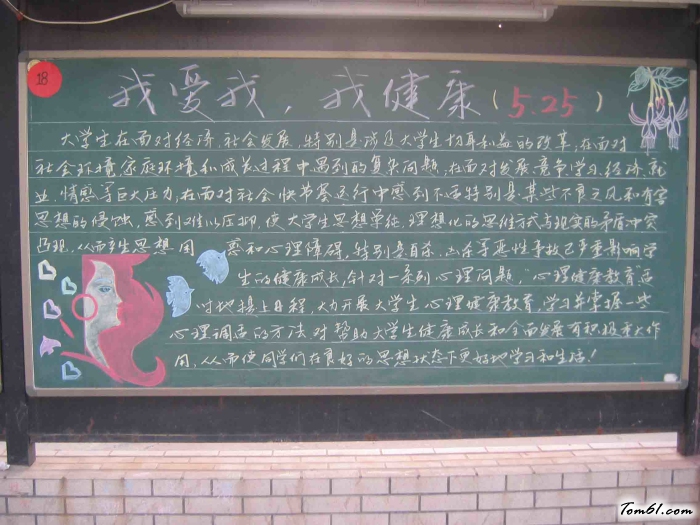 18
我爱我，我健康(5.25)
大学生在面对经济、社会发展，特别是涉及大学生切身利益的改革；在面对
社会环境、家庭环境和成长过程中遇到的复杂问题；在面对发展、竞争、学习、经济、就
业、情感等巨大压力；在面对社会快节奏运行中感到不适特别是某些不良之风和有害
思想的侵蚀，感到难以压抑，使大学生思想单纯、理想化的思维方式与现实的矛盾冲突
凸现，从而产生思想困惑和心理障碍，特别是自杀、凶杀等恶性事故已严重影响学
生的健康成长，针对一系列心理问题，"心理健康教育"适
时地提上日程，大力开展大学生心理健康教育，学习并掌握一些
心理调适的方法对帮助大学生健康成长和全面发展有积极重大作
用，从而使同学们在良好的思想状态下更好地学习和生活！
Tom61.com